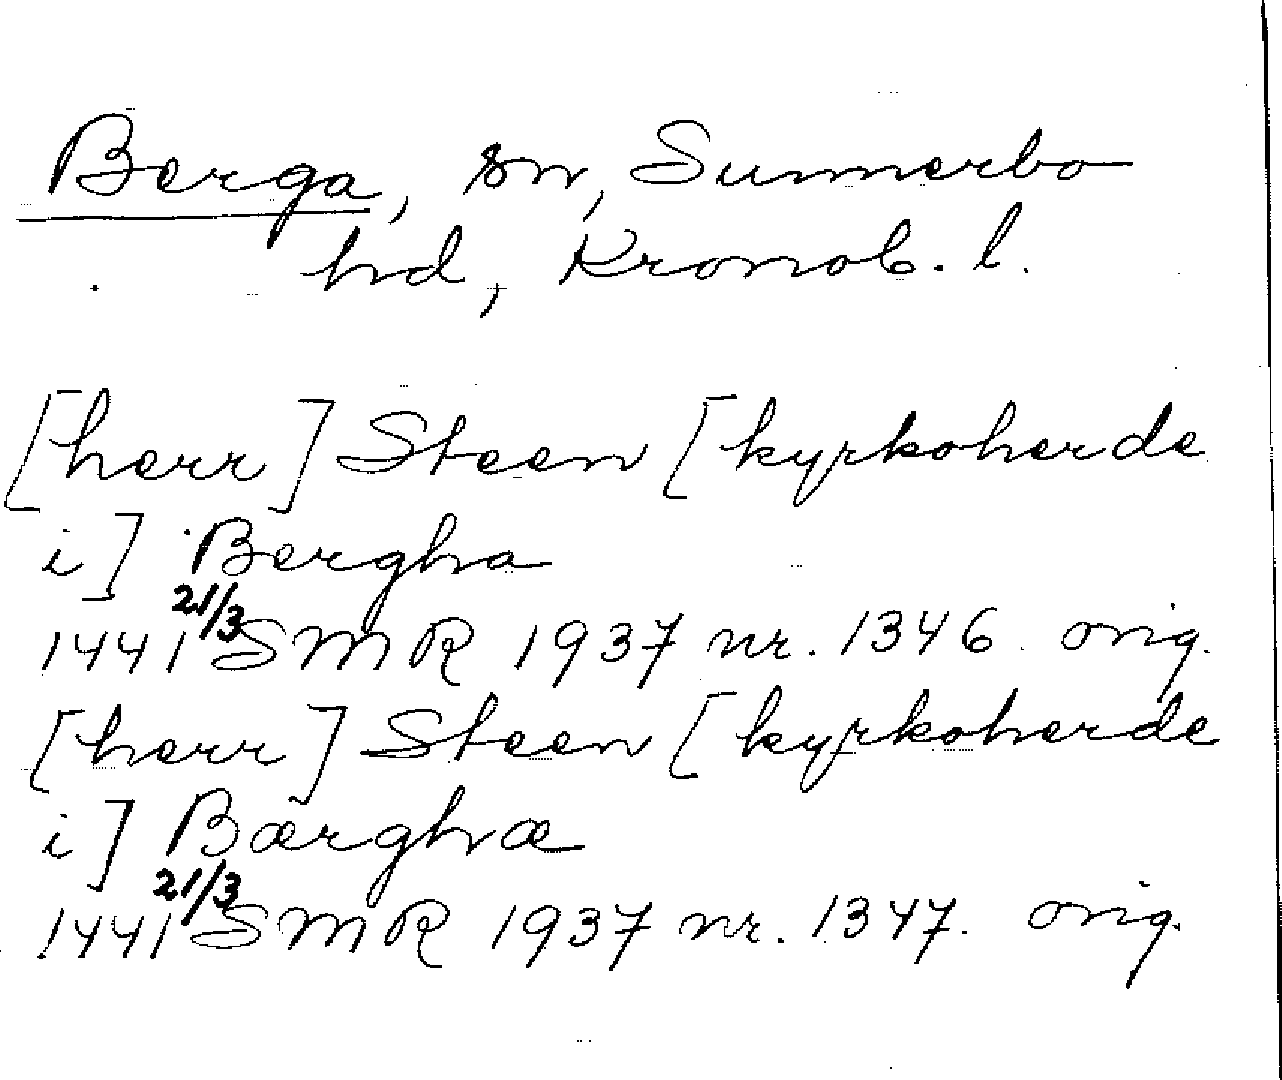 Berga, sn, Sunnerbo
hd, Kronob. l.
[herr] Steen [kyrkoherde
i] Bergha
1441 21/3 SMR 1937 nr. 1346 orig.
[herr] Steen [kyrkoherde
i] Bærghæ
1441 21/3 SMR 1937 nr. 1347. orig.